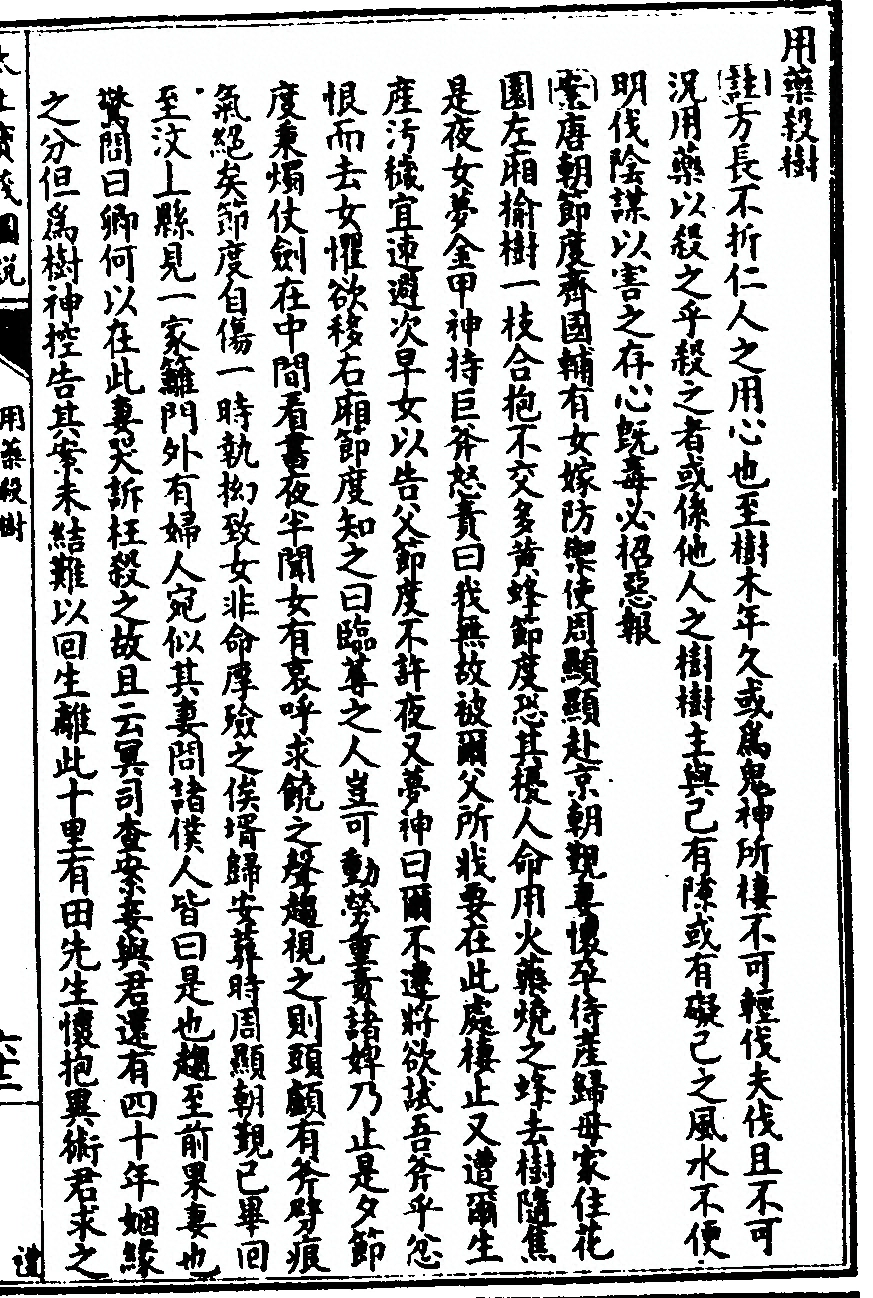 用藥殺樹
註方長不折仁人之用心也至樹木年久或爲鬼神所棲不可輕伐夫伐且不可
況用藥以殺之乎殺之者或係他人之樹樹主與己有隙或有礙己之風水不便
明伐陰謀以害之存心旣毒必招惡報
案唐朝節度齊國輔有女嫁防禦使周顯顯赴京朝覲妻懷孕待產歸母家住花
園左廂榆樹一枝合抱不交多黃蜂節度恐其擾人命用火藥燒之蜂去樹隨焦
是夜女夢金甲神持巨斧怒責曰我無故被爾父所戕要在此處棲止又遭爾生
產汚穢宜速避次早女以告父節度不許夜又夢神曰爾不遵將欲試吾斧乎忿
恨而去女懼欲移右廂節度知之曰臨蓐之人豈可動勞重責諸婢乃止是夕節
度秉燭仗劍在中間看書夜半聞女有哀呼求饒之聲趨視之則頭顱有斧劈痕
氣絕矣節度自傷一時執拗致女非命厚殮之俟壻歸安葬時周顯朝覲已畢回
至汶上縣見一家籬門外有婦人宛似其妻問諸僕人皆曰是也趨至前果妻也
驚問曰卿何以在此妻哭訴枉殺之故且云冥司查案妾與君還有四十年姻緣
之分但爲樹神控告其案未結難以回生離此十里有田先生懷抱異術君求之
用藥殺樹